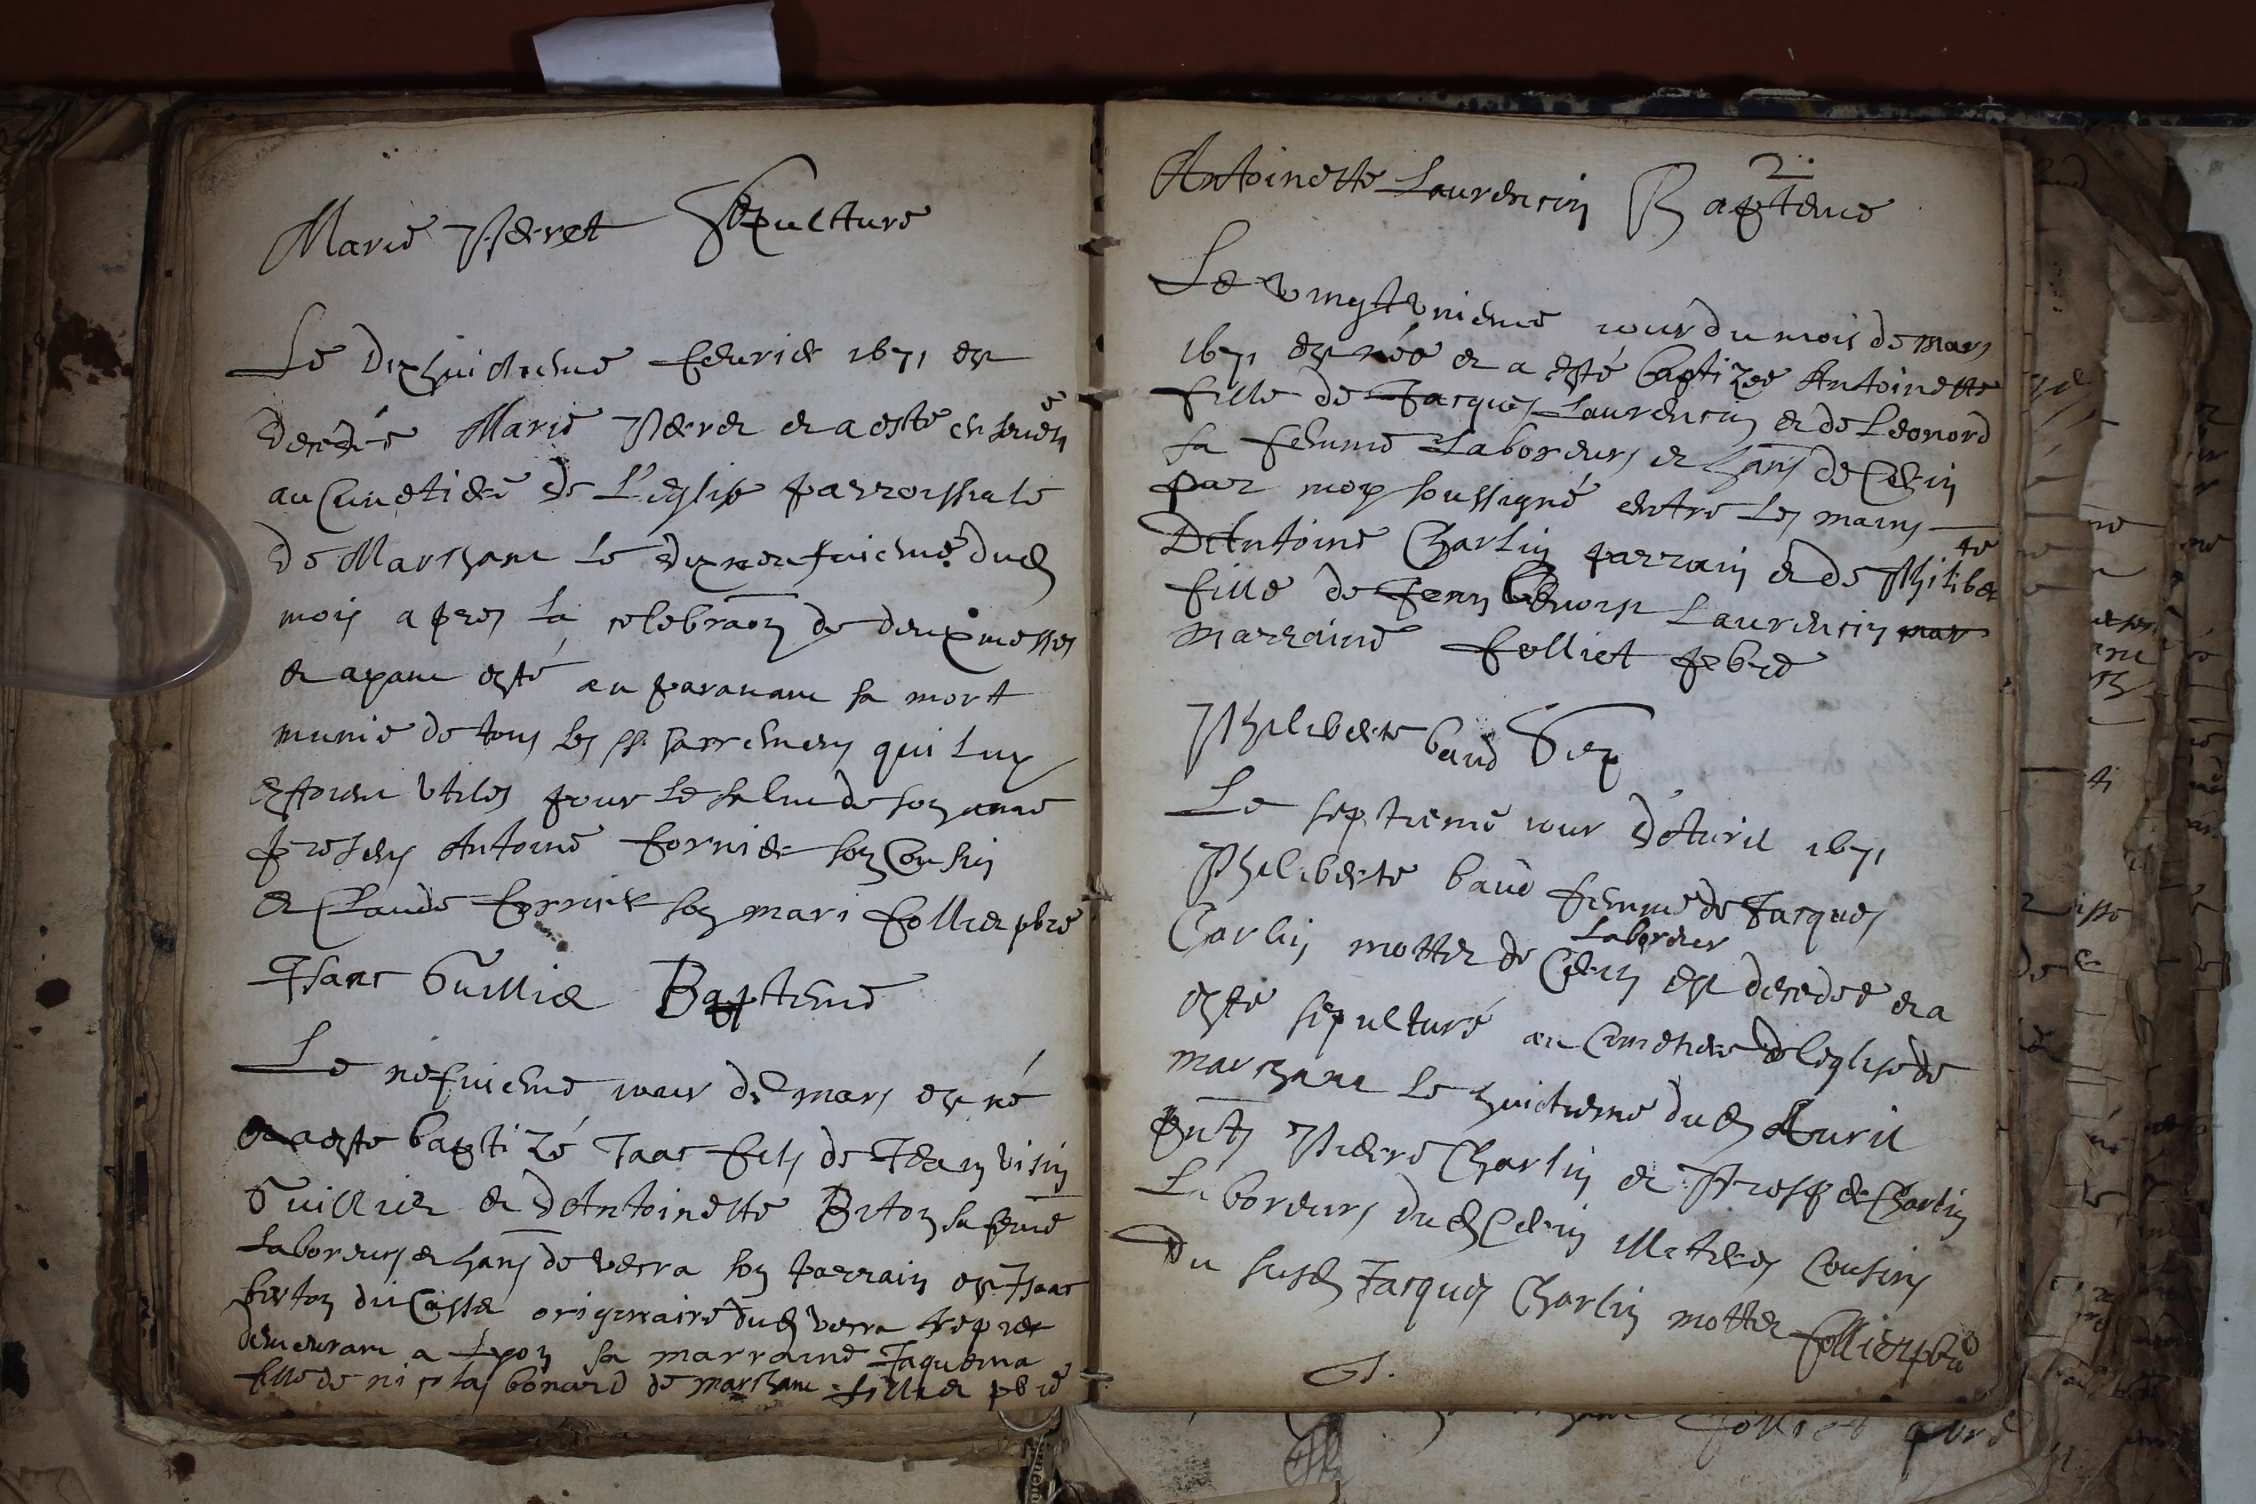 Marie Perret Sepulture
Le Dixhuictieme feburier 1671 est
decedée Marie Perret et a esté ensevelie
au Cimetiere de L'eglise parroissiale
de Marchant le dixneufuieme dud
mois apres la celebraon de deux messes
et ayant esté au paravant sa mort
munie de tous les SS sacremens qui luy
estoient utiles pour le salut de son ame
presens Antoine fornier son Cousin
et Claude fornier son mari folliet pbre
Isaac Guilliet Bapteme
Le nefuieme iour de mars est né
et a esté baptizé Isaac fils de Jean
Guilliet et d'Antoinette Berton sa feme
Laboreurs et hans de verra son parrain est Isaac
berton originaire dud verra
demeurant a Lyon sa marraine Jaquema
fille de nicolas bonard de marchant folliet pbre
2
Antoinette Laurencin Bapteme
Le vingtunieme iour du mois de mars
1671 est née et a esté baptizee Antoinette
fille de Jacques Laurencin et de Leonord
sa femme Laboreurs et hans de Cerin
par moy soussigné entre les mains
D'Antoine Charlin parrain et de Philiberte
fille de Jean Benoist Laurencin mar
marraine folliet pbre
Philiberte baud Sep
Le septieme iour d'Auril 1671
Philiberte baud femme de Jacques
Charlin mottet de Laboreur Cerin est decedee et a
esté sepulturé au Cimetiere de leglise de
marchant le huictieme dud Auril
pnts Pierre Charlin et Prosper Charlin
Laboreurs dud Cerin Cousins
du susd Jacques Charlin mottet folliet pbre